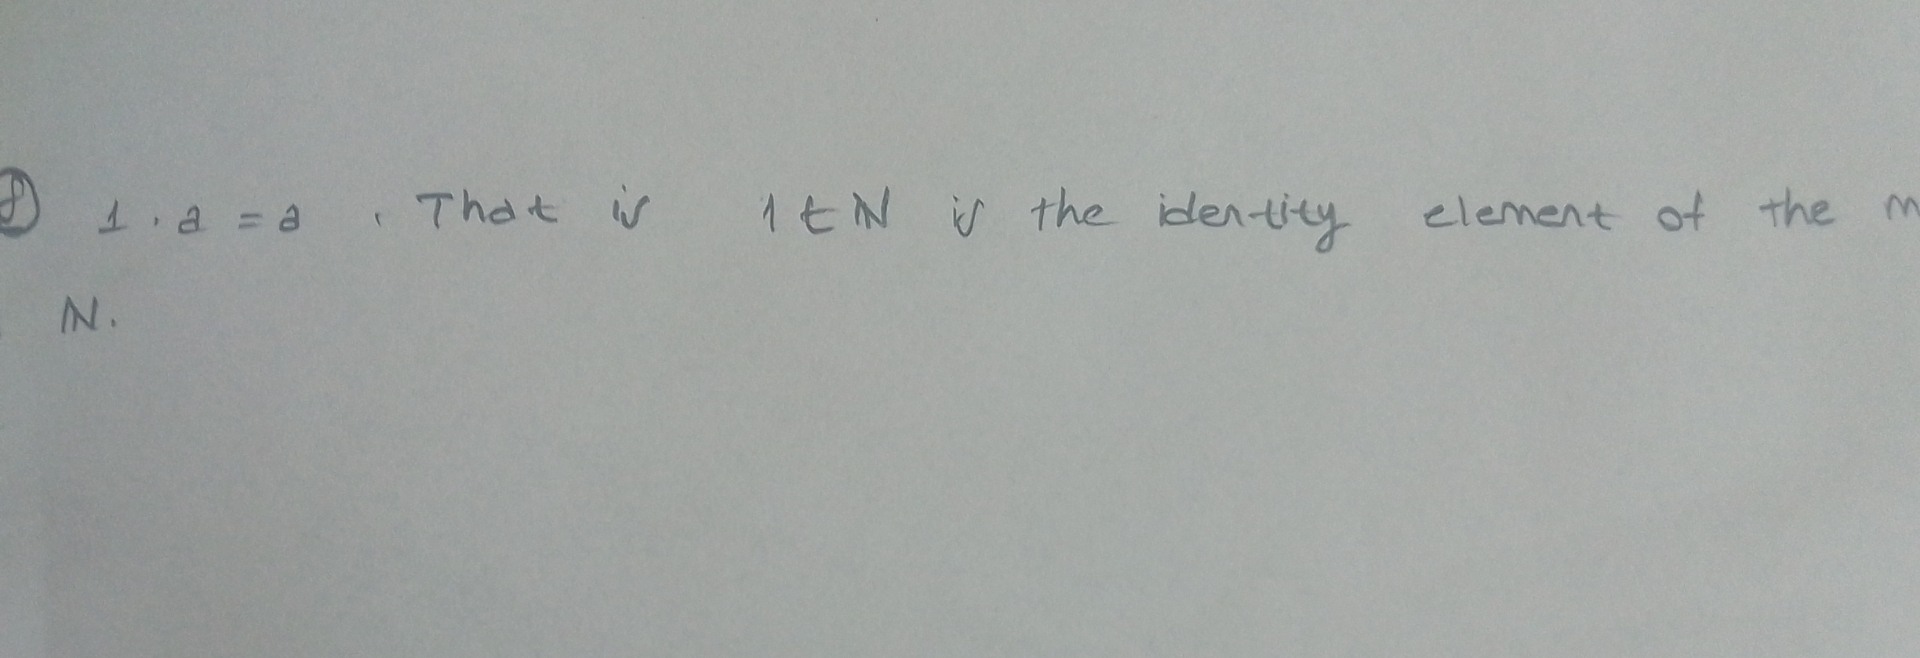 1 . a = a . That is 1 ∈ N is the identity element of the
N.